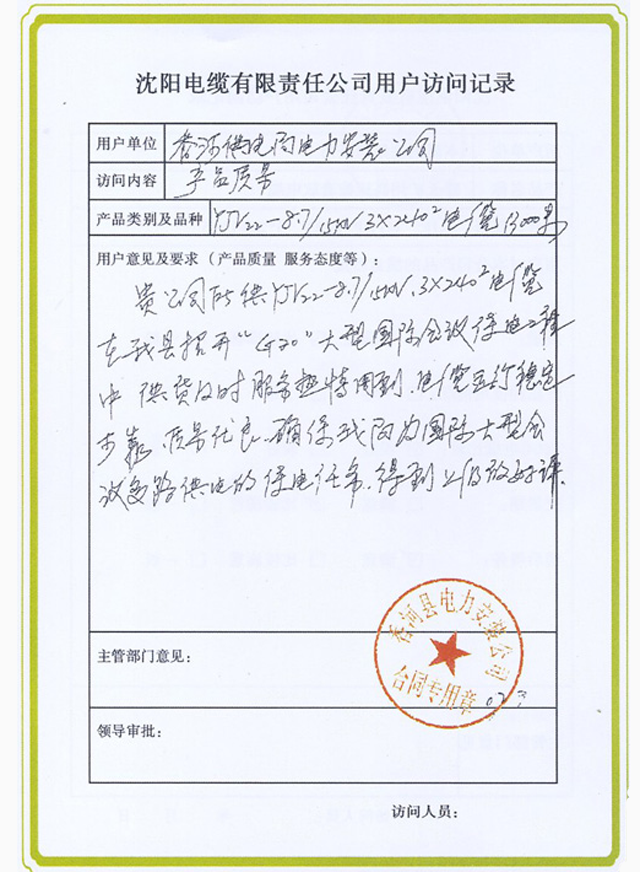 沈阳电缆有限责任公司用户访问记录
用户单位 香河供电局电力安装公司
访问内容 产品质量
产品类别及品种 YJV22-8.7/15KV 3×240² 电缆 13000米
用户意见及要求（产品质量 服务态度等）：
贵公司所供YJV22-8.7/15KV.3×240²电缆
在我县招开“G20”大型国际会议保电工程
中供货及时服务热情周到、电缆运行稳定
可靠、质量优良、确保我局为国际大型会
议多路供电的保电任务.得到上级好评.
主管部门意见：
香河县电力安装公司
合同专用章
领导审批：
访问人员：